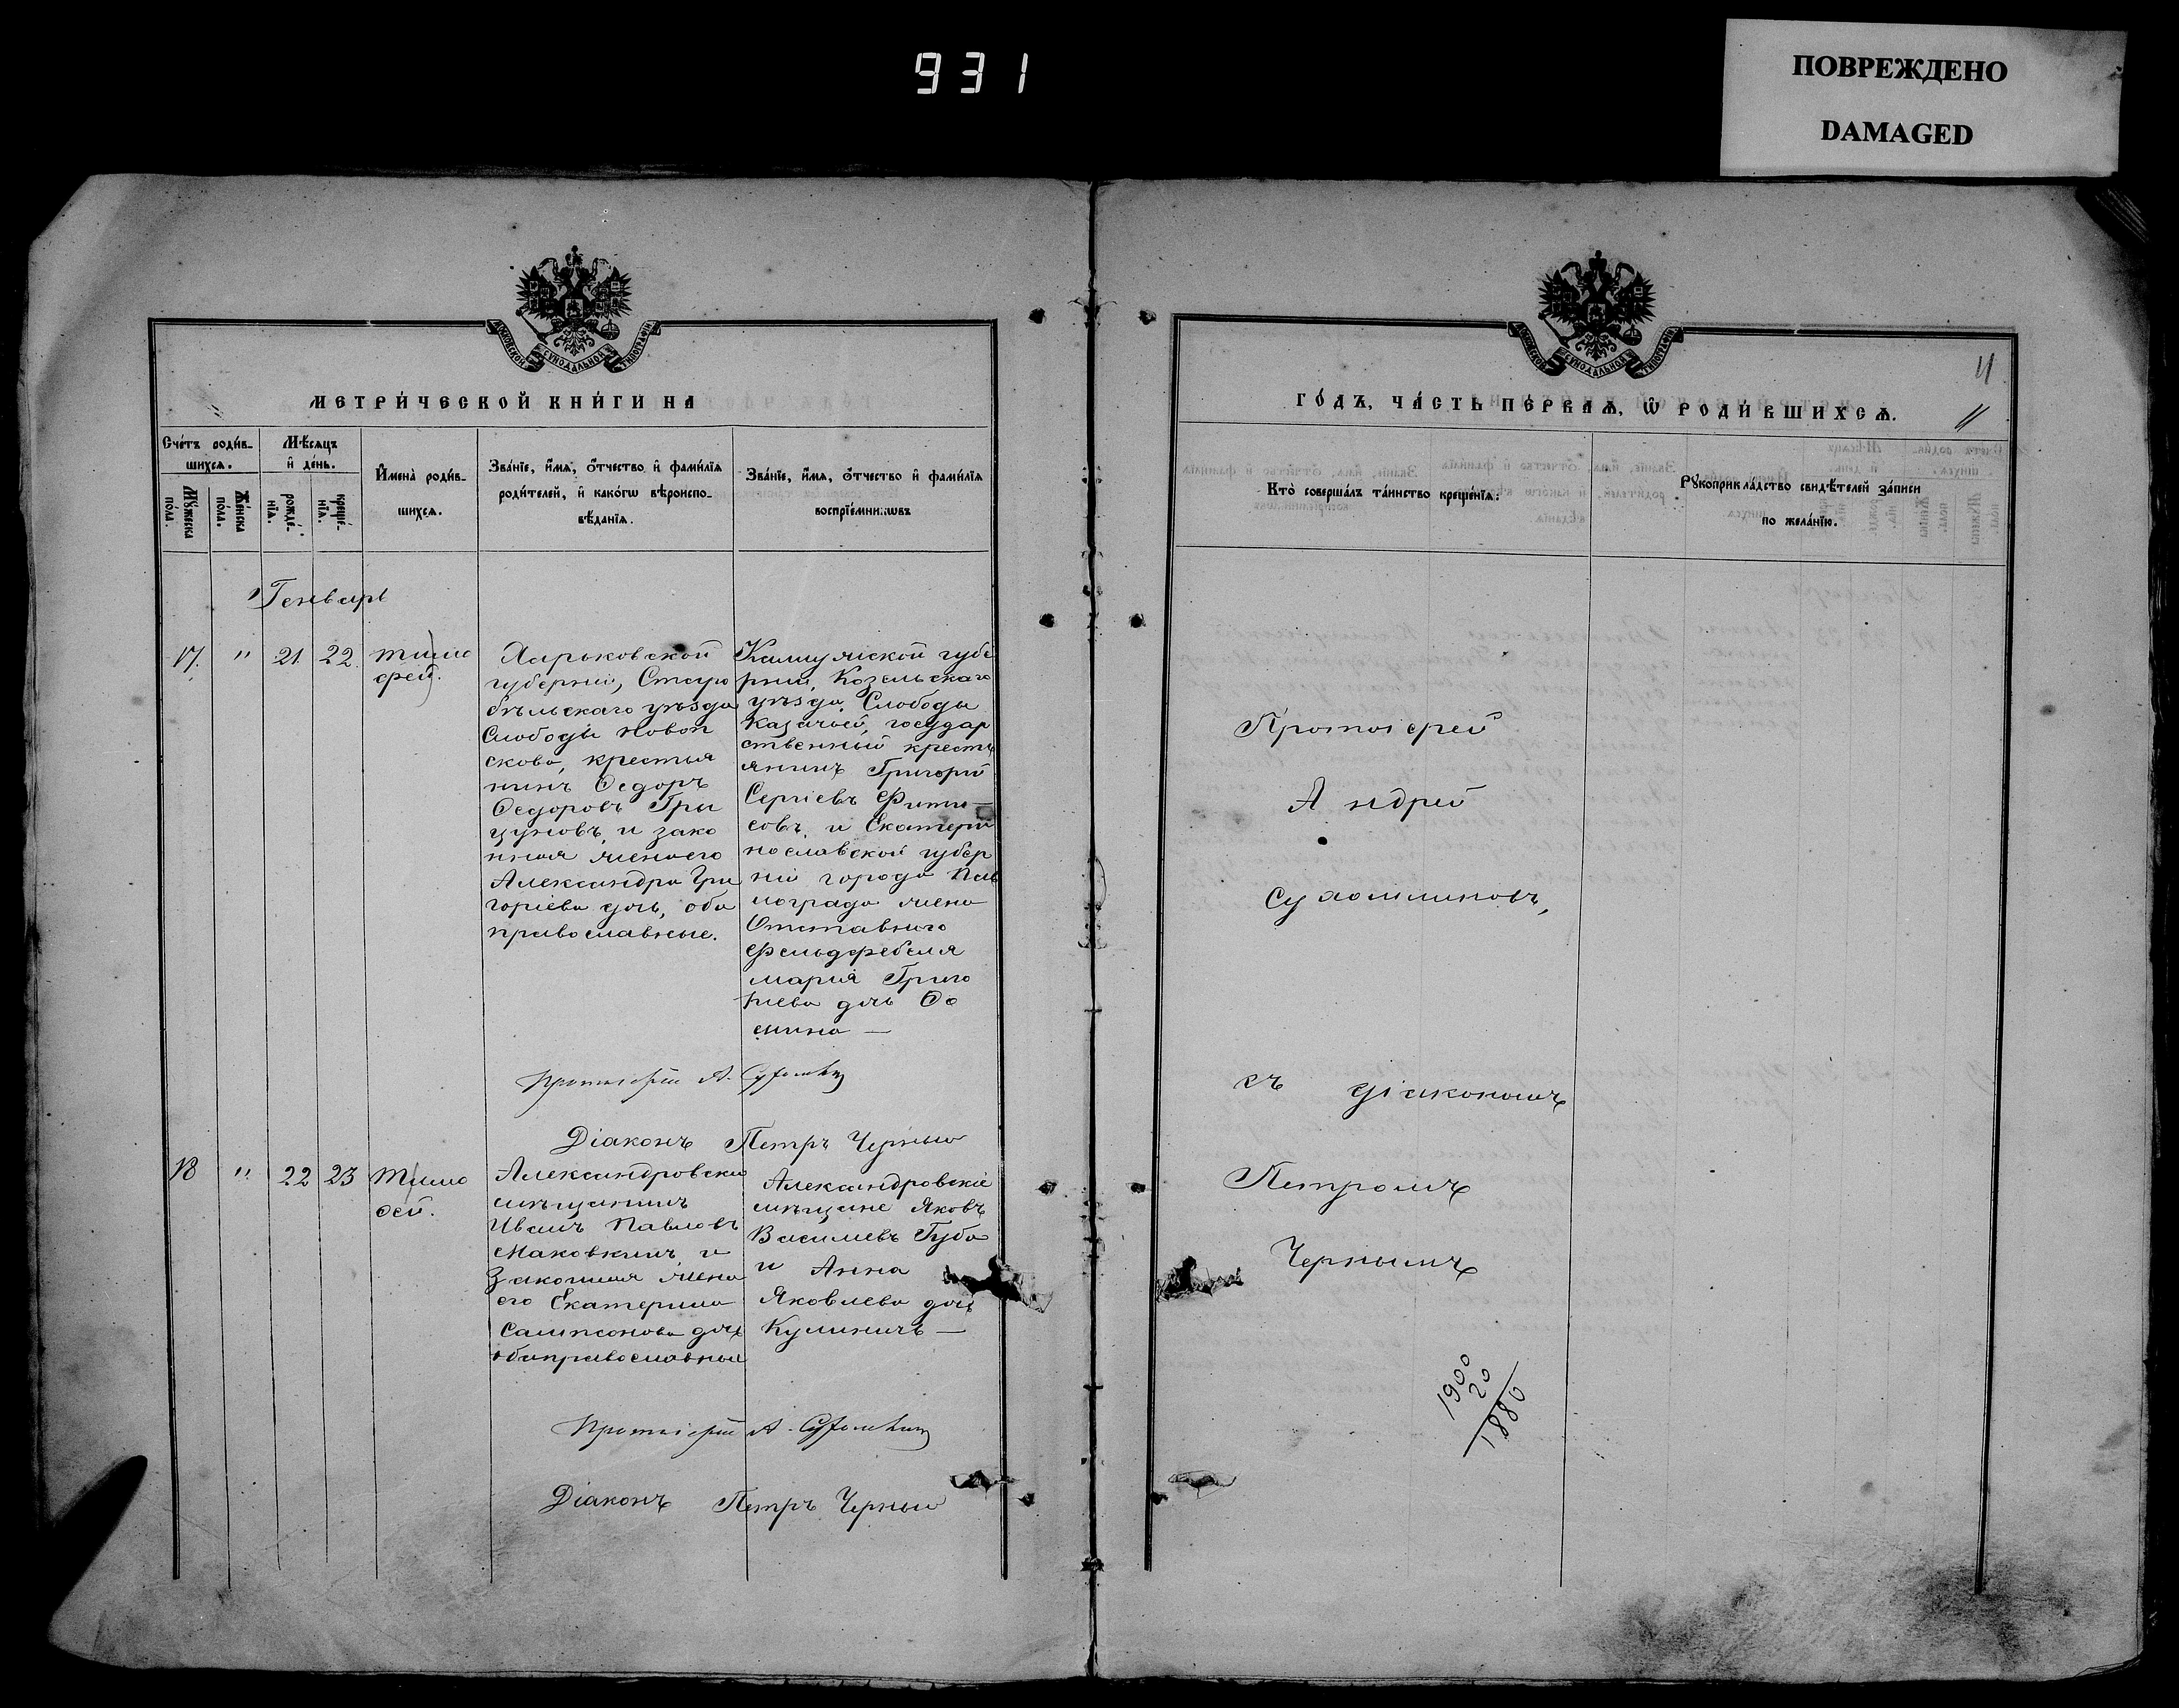 931
ПОВРЕЖДЕНО
DAMAGED
МОСКОВСКОЙ СѴНОДАЛЬНОЙ ТИПОГРАФІИ
МЕТРИ́ЧЕСКОЙ КНИ́ГИ НА
Сче́тъ роди́в-
шихсѧ.
Мѣ́сѧцъ
и҆ де́нь.
Мꙋ́жеска
по́ла.
Же́нска
по́ла.
рожде́-
нїѧ.
креще́-
нїѧ.
И҆мена̀ роди́в-
шихсѧ.
Зва́нїе, и҆́мѧ, ѻ҆́тчество и҆ фами́лїѧ
роди́телей, и҆ како́гѡ вѣроиспо-
вѣ́данїѧ.
Зва́нїе, и҆́мѧ, ѻ҆́тчество и҆ фами́лїѧ
воспрїе́мникѡвъ
Генварь
17. " 21 22
Тимо
фей.
Харьковской
губерніи, Старо
бѣльскаго уѣзда
Слободы Новоп
скова, крестья
нинъ Ѳедоръ
Ѳедоровъ Гри
цуновъ, и зако
нная жена его
Александра Гри
горіева дочь, оба
православные.
Калужской губе
рніи, Козельскаго
уѣзда, Слободы
Казачьей, государ
ственный кресть
янинъ Григорій
Сергіевъ
и Екатери
нославской губер
ніи города Пав
лограда жена
Отставного
Фельдфебеля
Марія Григо
ріева дочь Ѳо
мина —
Протоіерей А. Сухомлинов
Діаконъ Петръ Черный
18 " 22 23
Тимо
ѳей.
Александровскій
мѣщанинъ
Иванъ Павловъ
Маковкинъ и
Законная жена
его Екатерина
Сампсонова дочь
оба православные
Александровскіе
мѣщане Яковъ
Василіевъ Губа
и Анна
Яковлева дочь
Кулиничъ —
Протоіерей А. Сухомлинов
Діаконъ Петръ Черный
11
11
ГО́ДЪ, ЧА́СТЬ ПЕ́РВАѦ, Ѡ҆ РОДИ́ВШИХСѦ.
Кто̀ соверша́лъ та́инство креще́нїѧ:
Рꙋкоприкла́дство свидѣ́телей за́писи
по жела́нїю.
Протоіерей
Андрей
Сухомлиновъ,
съ діакономъ
Петромъ
Чернымъ
1900
20
1880